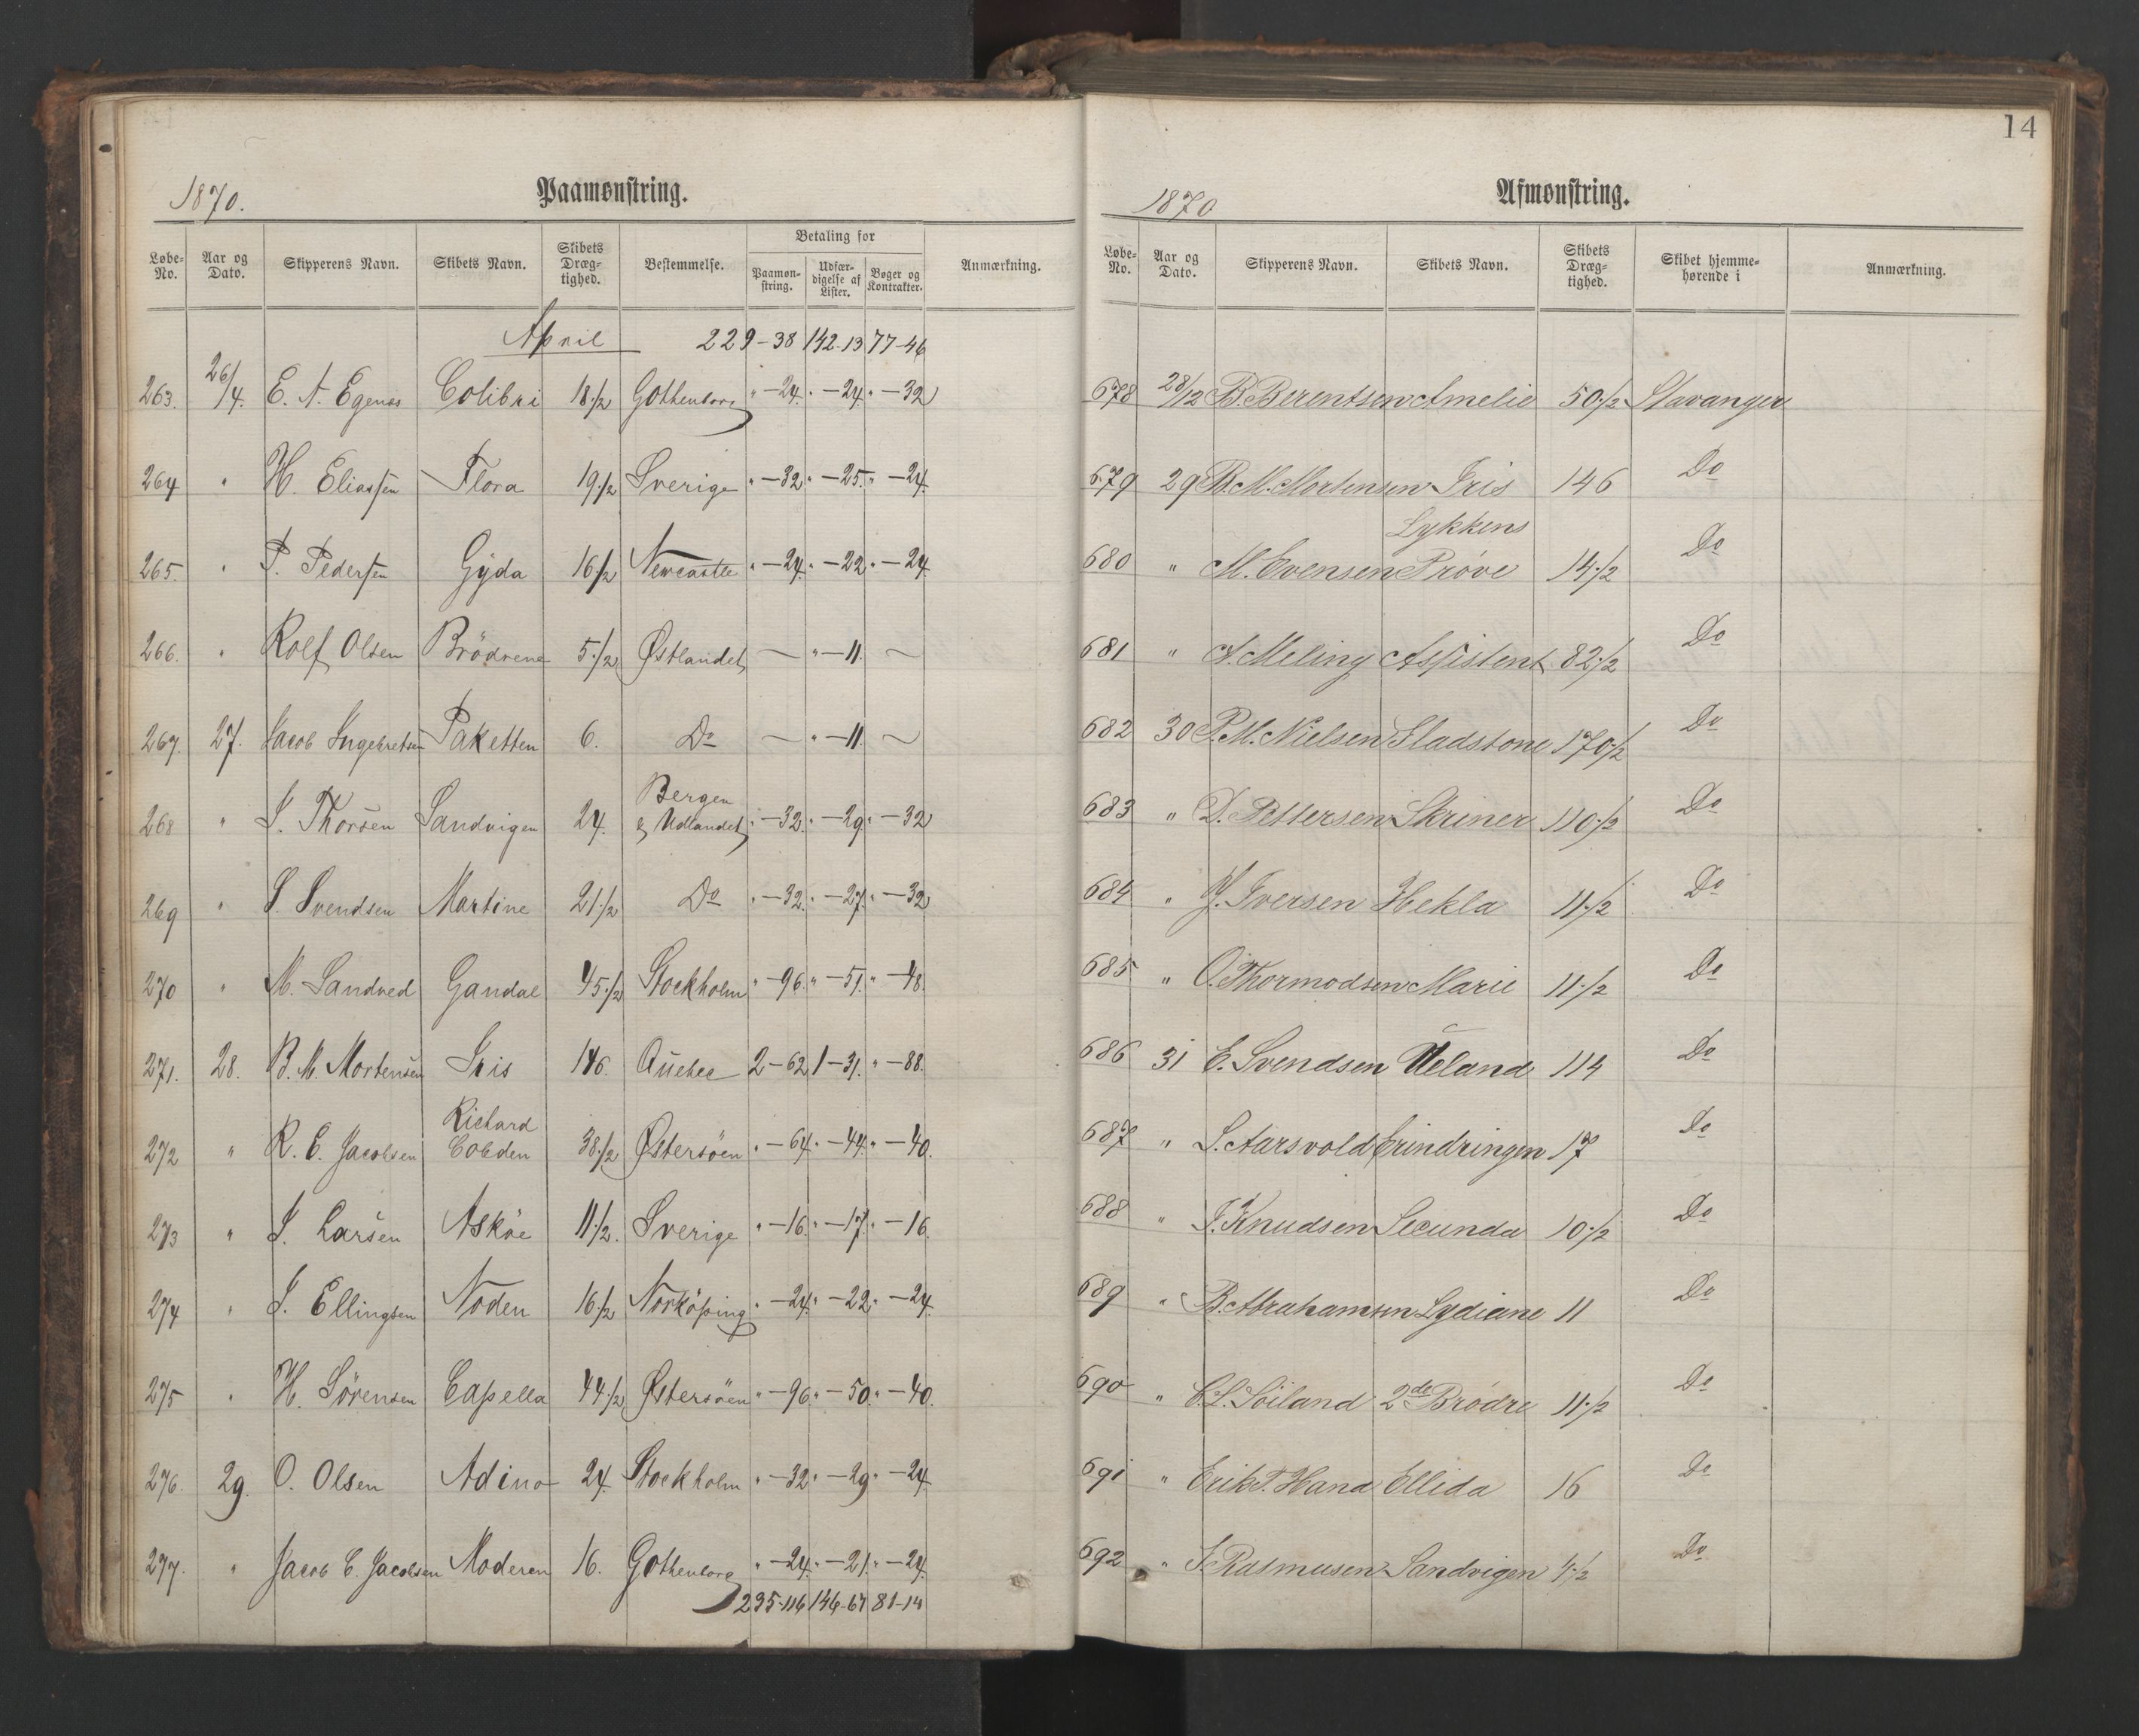 1870.
Paamønstring.
Løbe-No. Aar og Dato. Skipperens Navn. Skibets Navn. Skibets Dræg-tighed. Bestemmelse. Betaling for Paamøn-string. Udfær-digelse af Lister. Bøger og Kontrakter. Anmærkning.
April 229-38 142-13 77-46
263. 26/4. E. A. Egenæs Colibri 18 1/2 Gothenborg " -24. " -24. " -32
264 " H. Eliassen Flora 19 1/2 Sverige " -32. " -25. " -24.
265. " P. Pedersen Gyda 16 1/2 Newcastle " -24. " -22 " -24.
266. " Rolf Olsen Brödrene 5 1/2 Østlandet — " -11. —
267. 27. Jacob Ingebretsen Paketten 6. Do — " -11. —
268 " S. Thorsen Sandvigen 24. Bergen & Udlandet " -32. " -29. " -32
269 " S. Svendsen Martine 21 1/2 Do " -32. " -27. " -32
270 " M. Sandved Gandal 45 1/2 Stockholm " -96. " -51. " -48.
271. 28. B. M. Mortensen Iris 146. Quebec 2-62 1-31. " -88.
272 " R. E. Jacobsen Richard Cobden 38 1/2 Østersöen " -64. " -44. " -40.
273 " S. Larsen Asköe 11 1/2. Sverige " -16. " -17. " -16.
274 " S. Ellingsen Noden 16 1/2 Norköping " -24. " -22. " -24.
275 " H. Sörensen Capella 44 1/2 Østersöen " -96. " -50. " -40.
276. 29. O. Olsen Adino 24. Stockholm " -32. " -29. " -24.
277. " Jacob C. Jacobsen Moderen 16. Gothenborg " -24. " -21. " -24.
235-116 146-67 81-14
14
1870
Afmønstring.
Løbe-No. Aar og Dato. Skipperens Navn. Skibets Navn. Skibets Dræg-tighed. Skibet hjemme-hørende i Anmærkning.
678 28/12 B. Berentsen Amelie 50 1/2 Stavanger
679 29 B. M. Mortensen Iris 146 Do
680 " M. Evensen Lykkens Prøve 14 1/2 Do
681 " A. Meling Assistent 82 1/2 Do
682 30 P. M. Nielsen Gladstone 170 1/2 Do
683 " D. Pettersen Skriner 110 1/2 Do
684 " Y. Iversen Hekla 11 1/2 Do
685 " O. Thormodsen Marie 11 1/2 Do
686 31 E. Svendsen Ueland 114 Do
687 " S. Aarsvold Erindringen 17 Do
688 " J. Knudsen Secunda 10 1/2 Do
689 " B. Abrahamsen Lydiane 11 Do
690 " C. L. Söiland 2de Brödre 11 1/2 Do
691 " Erik T. Hana Ellida 16 Do
692 " J. Rasmusen Sandvigen 4 1/2 Do